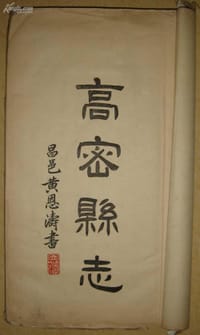 高密縣志
昌邑黃恩濤書